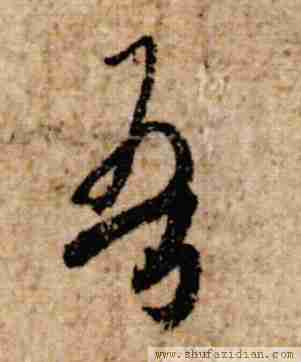 吾
www.shufazidian.com